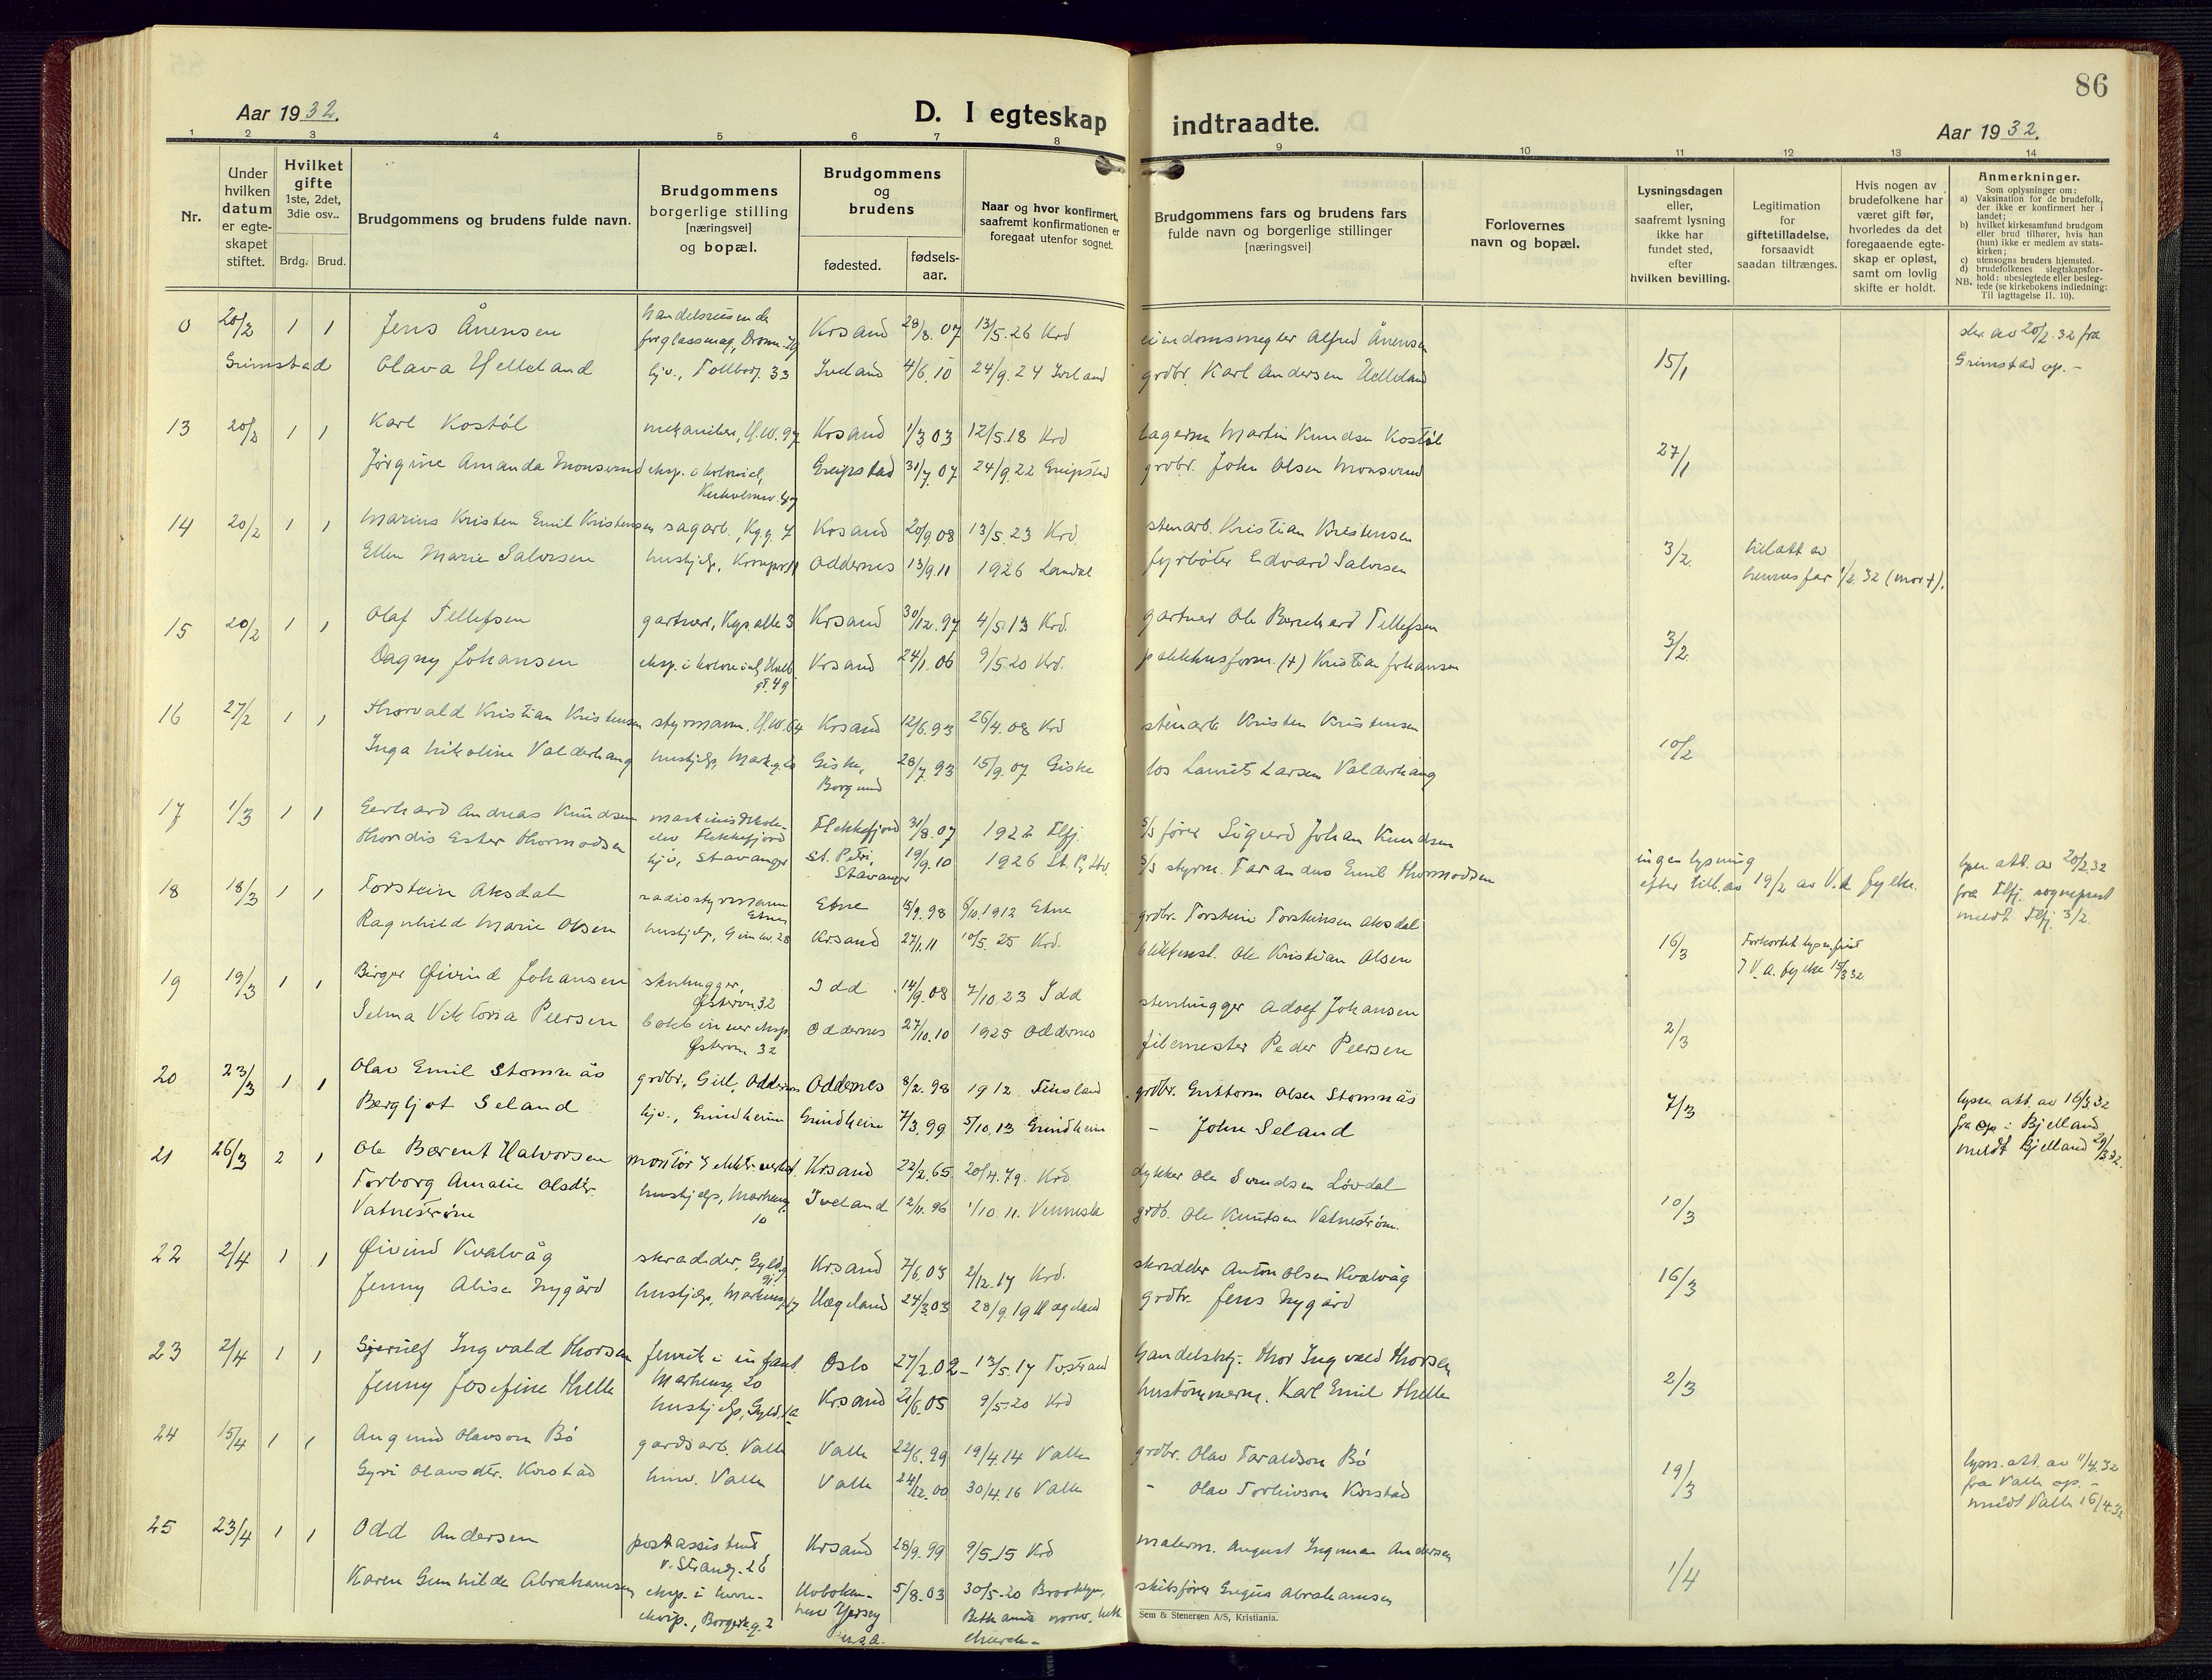 86
Aar 1932.
D. I egteskap indtraadte.
Aar 1932.
1 2 3 4 5 6 7 8 9 10 11 12 13 14
Nr.
Under hvilken datum er egteskapet stiftet.
Hvilket gifte 1ste, 2det, 3die osv..
Brdg. Brud.
Brudgommens og brudens fulde navn.
Brudgommens borgerlige stilling [næringsvei] og bopæl.
Brudgommens og brudens
fødested.
fødselsaar.
Naar og hvor konfirmert, saafremt konfirmationen er foregaat utenfor sognet.
Brudgommens fars og brudens fars fulde navn og borgerlige stillinger [næringsvei]
Forlovernes navn og bopæl.
Lysningsdagen eller, saafremt lysning ikke har fundet sted, efter hvilken bevilling.
Legitimation for giftetilladelse, forsaavidt saadan tiltrænges.
Hvis nogen av brudefolkene har været gift før, hvorledes da det foregaaende egteskap er opløst, samt om lovlig skifte er holdt.
Anmerkninger.
Som oplysninger om:
a) Vaksination for de brudefolk, der ikke er konfirmert her i landet;
b) hvilket kirkesamfund brudgom eller brud tilhører, hvis han (hun) ikke er medlem av statskirken;
c) utensogns bruders hjemsted.
d) brudefolkenes slegtskapsforhold: ubeslegtede eller beslegtede (se kirkebokens indledning: Til iagttagelse II. 10).
NB.
0 20/2 1 1 Jens Ånensen handelsreisende Krsand 28/8.07 13/5.26 Krd eiendomsmegler Alfred Ånensen 15/1
Grimstad Olava Helleland hjv., Tollbog. 33 Iveland 4/6.10 24/9.24 Iveland grdbr. Karl Andersen Helleland Grimstad op. -
13 20/2 1 1 Karl Kostøl mekaniker, H.W. 97 Krsand 1/3 03 12/5.18 Krd lagerm Martin Knudsen Kostøl 27/1
Jørgine Amanda Monsvend eksp. i kolonial, Greipstad 31/7.07 24/9.22 Greipstad grdbr. John Olsen Monsvend
14 20/2 1 1 Marius Kristen Emil Kristensen sagarb., Kg.g. 7 Krsand 20/9.08 13/5.23 Krd. stenarb. Kristian Kristensen 3/2.
Ellen Marie Salvesen hushjelp, Oddernes 13/9.11 1926 fyrbøter Edvard Salvesen hennes far 1/2.32 (mor +).
15 20/2 1 1 Olaf Tellefsen gartner, Krsand 30/12.97 4/5.13 Krd. gartner Ole Bernhard Tellefsen 3/2.
Dagny Johansen eksp. i kolonial, Krsand 24/1.06 9/5.20 Krd. pakkhusform. (+) Kristian Johansen
16 27/2 1 1 Thorvald Kristian Kristensen styrmann. H.W. 64 Krsand 12/6.93 26/4.08 Krd stenarb. Kristen Kristensen 10/2
Inga Nikoline Valderhaug hushjelp, Mark.g. 20 Giske, Borgund 28/7.93 15/9.07 Giske los Larsen Valderhaug
17 1/3 1 1 Gerhard Andreas Knudsen Flekkefjord 31/8.07 1922 Flfj. S/S fører Sigurd Johan Knudsen ingen lysning
Thordis Ester Thormodsen hjv, Stavanger St. Petri, Stavanger 19/9.10 1926 S/S styrm. Emil Thormodsen efter till. av 19/2 av V.A. fylke.
lysn. att. av 20/2 32
fra Flfj. sogneprest
meldt Flfj. 3/2.
18 18/3 1 1 Torstein Aksdal radiostyrmann Etne Etne 15/9.98 6/10.1912 Etne grdbr. Torstein Torsteinsen Aksdal 16/3 Forkortet lysn.frist
Ragnhild Marie Olsen hushjelp, Krsand 27/1.11 10/5.25 Krd. Ole Kristian Olsen V.A. fylke 15/3 32
19 19/3 1 1 Birger Øivind Johansen stenhugger, Østervn 32 Idd 14/9.08 7/10.23 Idd stenhugger Adolf Johansen 2/3
Selma Viktoria Peersen Østervn 32 Oddernes 27/10.10 1925 Oddernes filemester Peder Peersen
20 23/3 1 1 Olav Emil Stomnås grdbr., Gill, Oddernes Oddernes 8/2.98 1912 Finsland grdbr. Guttorm Olsen Stomnås 7/3
Bergljot Seland hjv., Grindheim Grindheim 7/3.99 5/10.13 Grindheim - John Seland
lysn. att. av 16/3 32
fra op i Bjelland
meldt Bjelland 29/3 32.
21 26/3 2 1 Ole Berent Halvorsen montør Krsand 22/2.65 20/4.79. Krd dykker Ole Svendsen Løvdal 10/3
Torborg Amalie Olsdtr. Vatnestrøm hushjelp, Markensg 10 Iveland 12/11.96 1/10.11. Vennesla grdb. Ole Knutsen Vatnestrøm.
22 2/4 1 1 Øivind Kvalvåg skredder, Krsand 7/6.03 2/12.17 Krd. skredder Anton Olsen Kvalvåg 16/3
Jenny Alise Nygård hushjelp, Markensg 17 Hægeland 24/3.03 28/9.19 Hægeland grdbr. Jens Nygård
23 2/4 1 1 Ingvald Thorsen fenrik i infant. Markensg. 20 Oslo 27/2.02 13/5.17 handelsbtj. Thor Ingvald Thorsen 2/3
Jenny Josefine Helle hushjelp, Krsand 21/6.05 9/5.20 Krd hustømmerm. Karl Emil Helle
24 15/4 1 1 Angund Olavson Bø gardsarb. Valle Valle 22/6.99 19/4.14 Valle grdbr. Olav Taraldson Bø 19/3
Gyri Olavsdtr. Valle Valle 24/12.00 30/4.16 Valle - Olav
lysn. att. av 11/4.32
fra Valle op. -
meldt Valle 16/4.32
25 23/4 1 1 Odd Andersen postassistent v. Strandg. 26 Krsand 28/9.99 9/5.15 Krd malerm. August Ingman Andersen 1/4
Karen Gunhilde Abrahamsen Hoboken New Yersey U.S.A. 5/8.03 30/5.20 Brooklyn, Bethania norw. luth church - skibsfører Abrahamsen
Sem & Stenersen A/S, Kristiania.